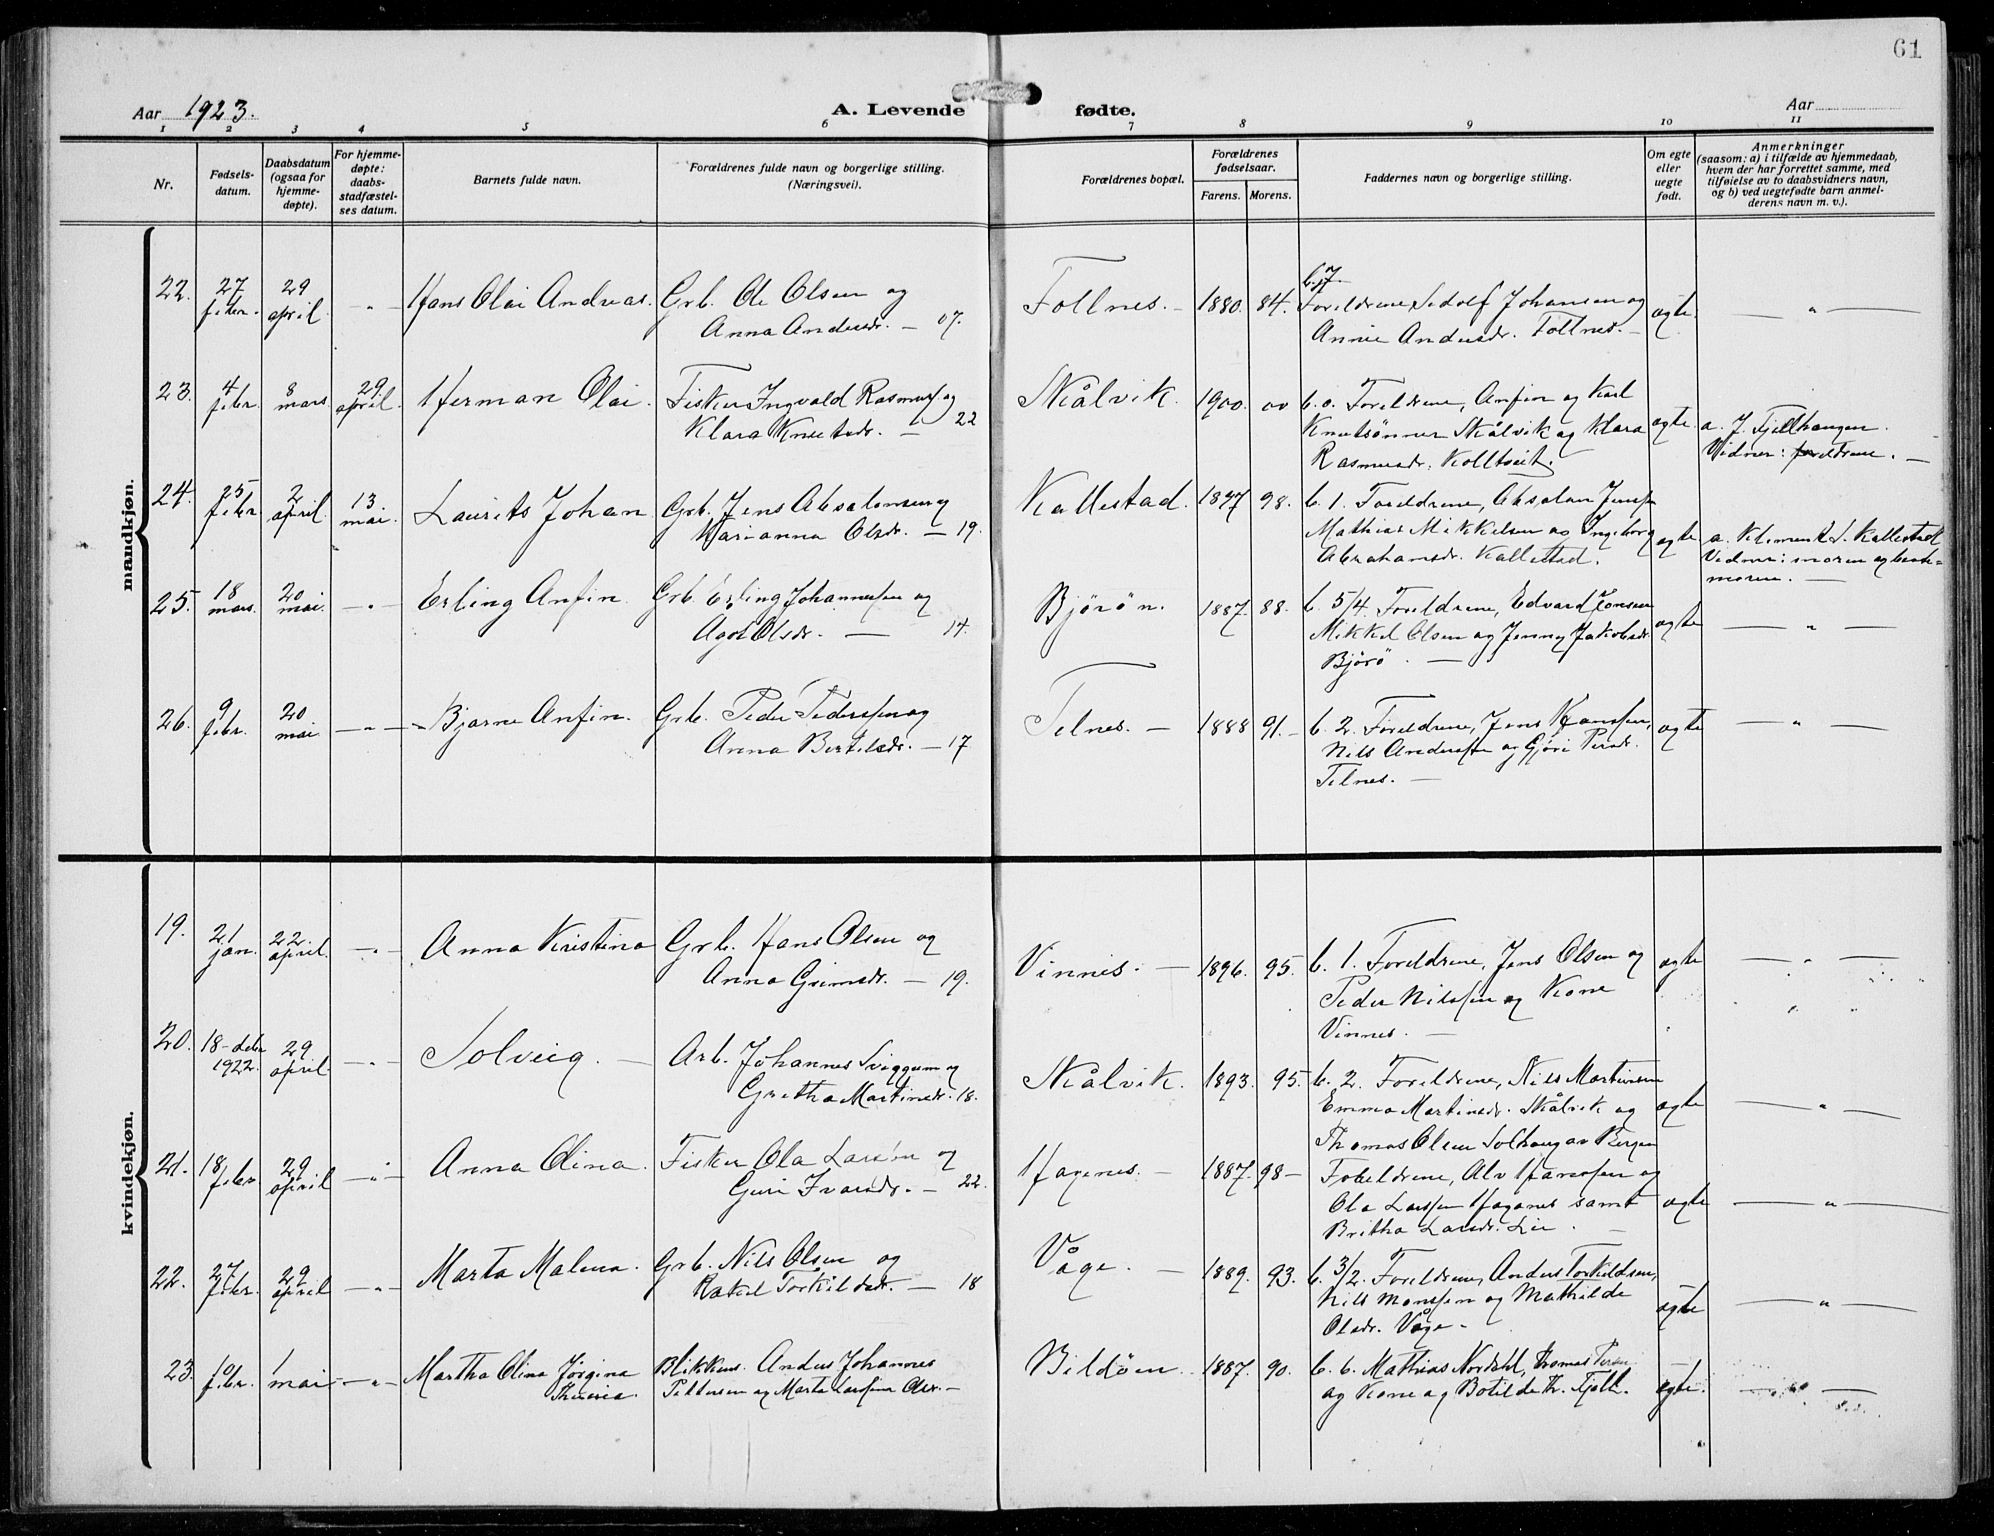 61
Aar 1923.
A. Levende fødte.
Aar
1 2 3 4 5 6 7 8 9 10 11
Nr.
Fødsels-
datum.
Daabsdatum
(ogsaa for
hjemme-
døpte).
For hjemme-
døpte:
daabs-
stadfæstel-
ses datum.
Barnets fulde navn.
Forældrenes fulde navn og borgerlige stilling.
(Næringsvei).
Forældrenes bopæl.
Forældrenes
fødselsaar.
Farens. Morens.
Faddernes navn og borgerlige stilling.
Om egte
eller
uegte
født.
Anmerkninger
(saasom: a) i tilfælde av hjemmedaab,
hvem der har forrettet samme, med
tilføielse av to daabsvidners navn,
og b) ved uegtefødte barn anmel-
derens navn m. v.).
mandkjøn.
22. 27 febr. 29 april - " - Hans Olai Andreas. Grb. Ole Olsen og
Anna Andersdr. — 07.
Follnes. — 1880. 84. b. 7.
Foreldrene, Sedolf Johansen og
Annie Andersdr. Tollnes. —
ægte. — " —
23. 4 febr. 8 mars 29 april. Herman Olai. Fisker Ingvald Rasmuss. og
Klara Knutsdr. — 22
Skålvik. 1900. 00 b. o. Foreldrene, Anfin og Karl
Knutsønner Skålvik og Klara
Rasmusdr. Kolltveit.
ægte. a. J. Fjellhaugen.
Vidner: foreldrene. —
24. 25 febr 2 april. 13 mai. Laurits Johan Grb. Jens Absalonsen og
Marianna Olsdr. — 19.
Kallestad. 1897 98. b. 1. Foreldrene, Absalon Jenss.
Mathias Mikkelsen og Ingeborg
Abrahamsdr. Kallestad.
ægte a. Klement J. Kallestad
Vidner: moren og beste=
moren. —
25. 18 mars. 20 mai. — " — Erling Anfin. Grb. Erling Johannessen og
Agot Olsdr. — 14.
Bjørøn. 1887. 88. b. 5/4. Foreldrene, Edvard Jonsen
Mikkel Olsen og Jenny Jakobsdr.
Bjørø. —
ægte — " —
26. 9 febr. 20 mai — " — Bjarne Anfin. Grb. Peder Pederssen og
Anna Bertelsdr. — 17
Telnes. — 1888 91. — b. 2. Foreldrene, Jens Hanssen,
Nils Anderssen og Gjøri Persdr.
Telnes. —
ægte — " —
kvindekjøn.
19. 21 jan. 22. april. — " — Anna Kristina Grb. Hans Olsen og
Anna Grimsdr. — 19.
Vinnes. — 1896. 95. b. 1. Foreldrene, Jens Olsen og
Peder Nilssen og Kone
Vinnes. —
ægte — " —
20. 18 - debr 1922. 29 april — " — Solveig. — Arb. Johannes Sviggum og
Gretha Martinsdr. 18.
Skålvik. 1893. 95. b. 2. Foreldrene, Nils Martinsen
Emma Martinsdr. Skålvik og
Thomas Olsen Solhaug av Bergen
ægte — " —
21. 18 febr 29 april — " — Anna Olina. Fisker Ola Larsen og
Guri Ivarsdr. — 22.
Hagenes. — 1887. 98 — Foreldrene, Alv Hanssen og
Ola Larssen Hagenes samt
Britha Larsdr. Lie. —
ægte — " —
22. 27 febr. 29 april — " — Marta Malena. Grb. Nils Olsen og
Rakel Torkildsdr. — 18
Våge. — 1889. 93. b. 3/2. Foreldrene, Anders Torkildsen,
Nils Monssen og Mathilde
Olsdr. Våge. —
ægte — " —
23. 10 febr. 1 mai — " — Martha Olina Jørgina
Blikkens. Anders Johannes
Pettersen og Marta Larsine Olsd. —
Bildøen 1887. 90. b. 6. Mathias Nordahl, Thomas
og Kone og Botilde Fjell.
ægte. —